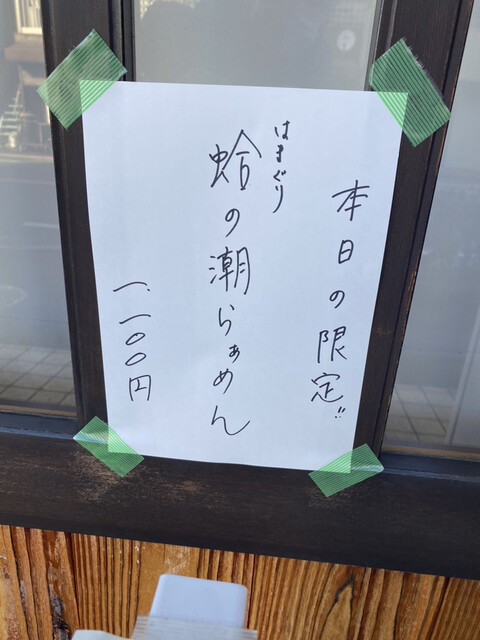 本日の限定!!
はまぐり
蛤の潮らぁめん
一、一〇〇円